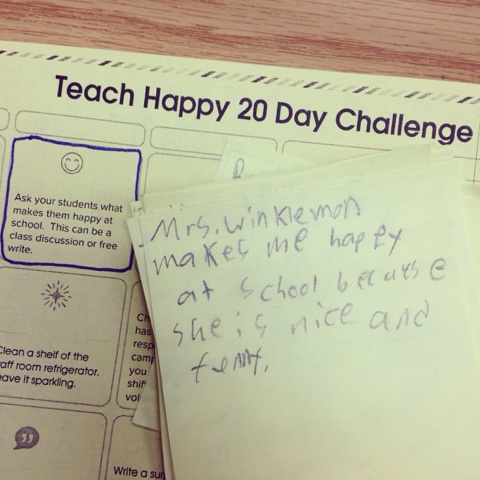 Teach Happy 20 Day Challenge
Ask your students what
makes them happy at
school. This can be a
class discussion or free
write.
Mrs. Winklemon
makes me happy
at school because
she is nice and
funny.
Clean a shelf of the
aff room refrigerator.
eave it sparkling.
Ch
has
resp
camp
you
shif
vol
Write a sur